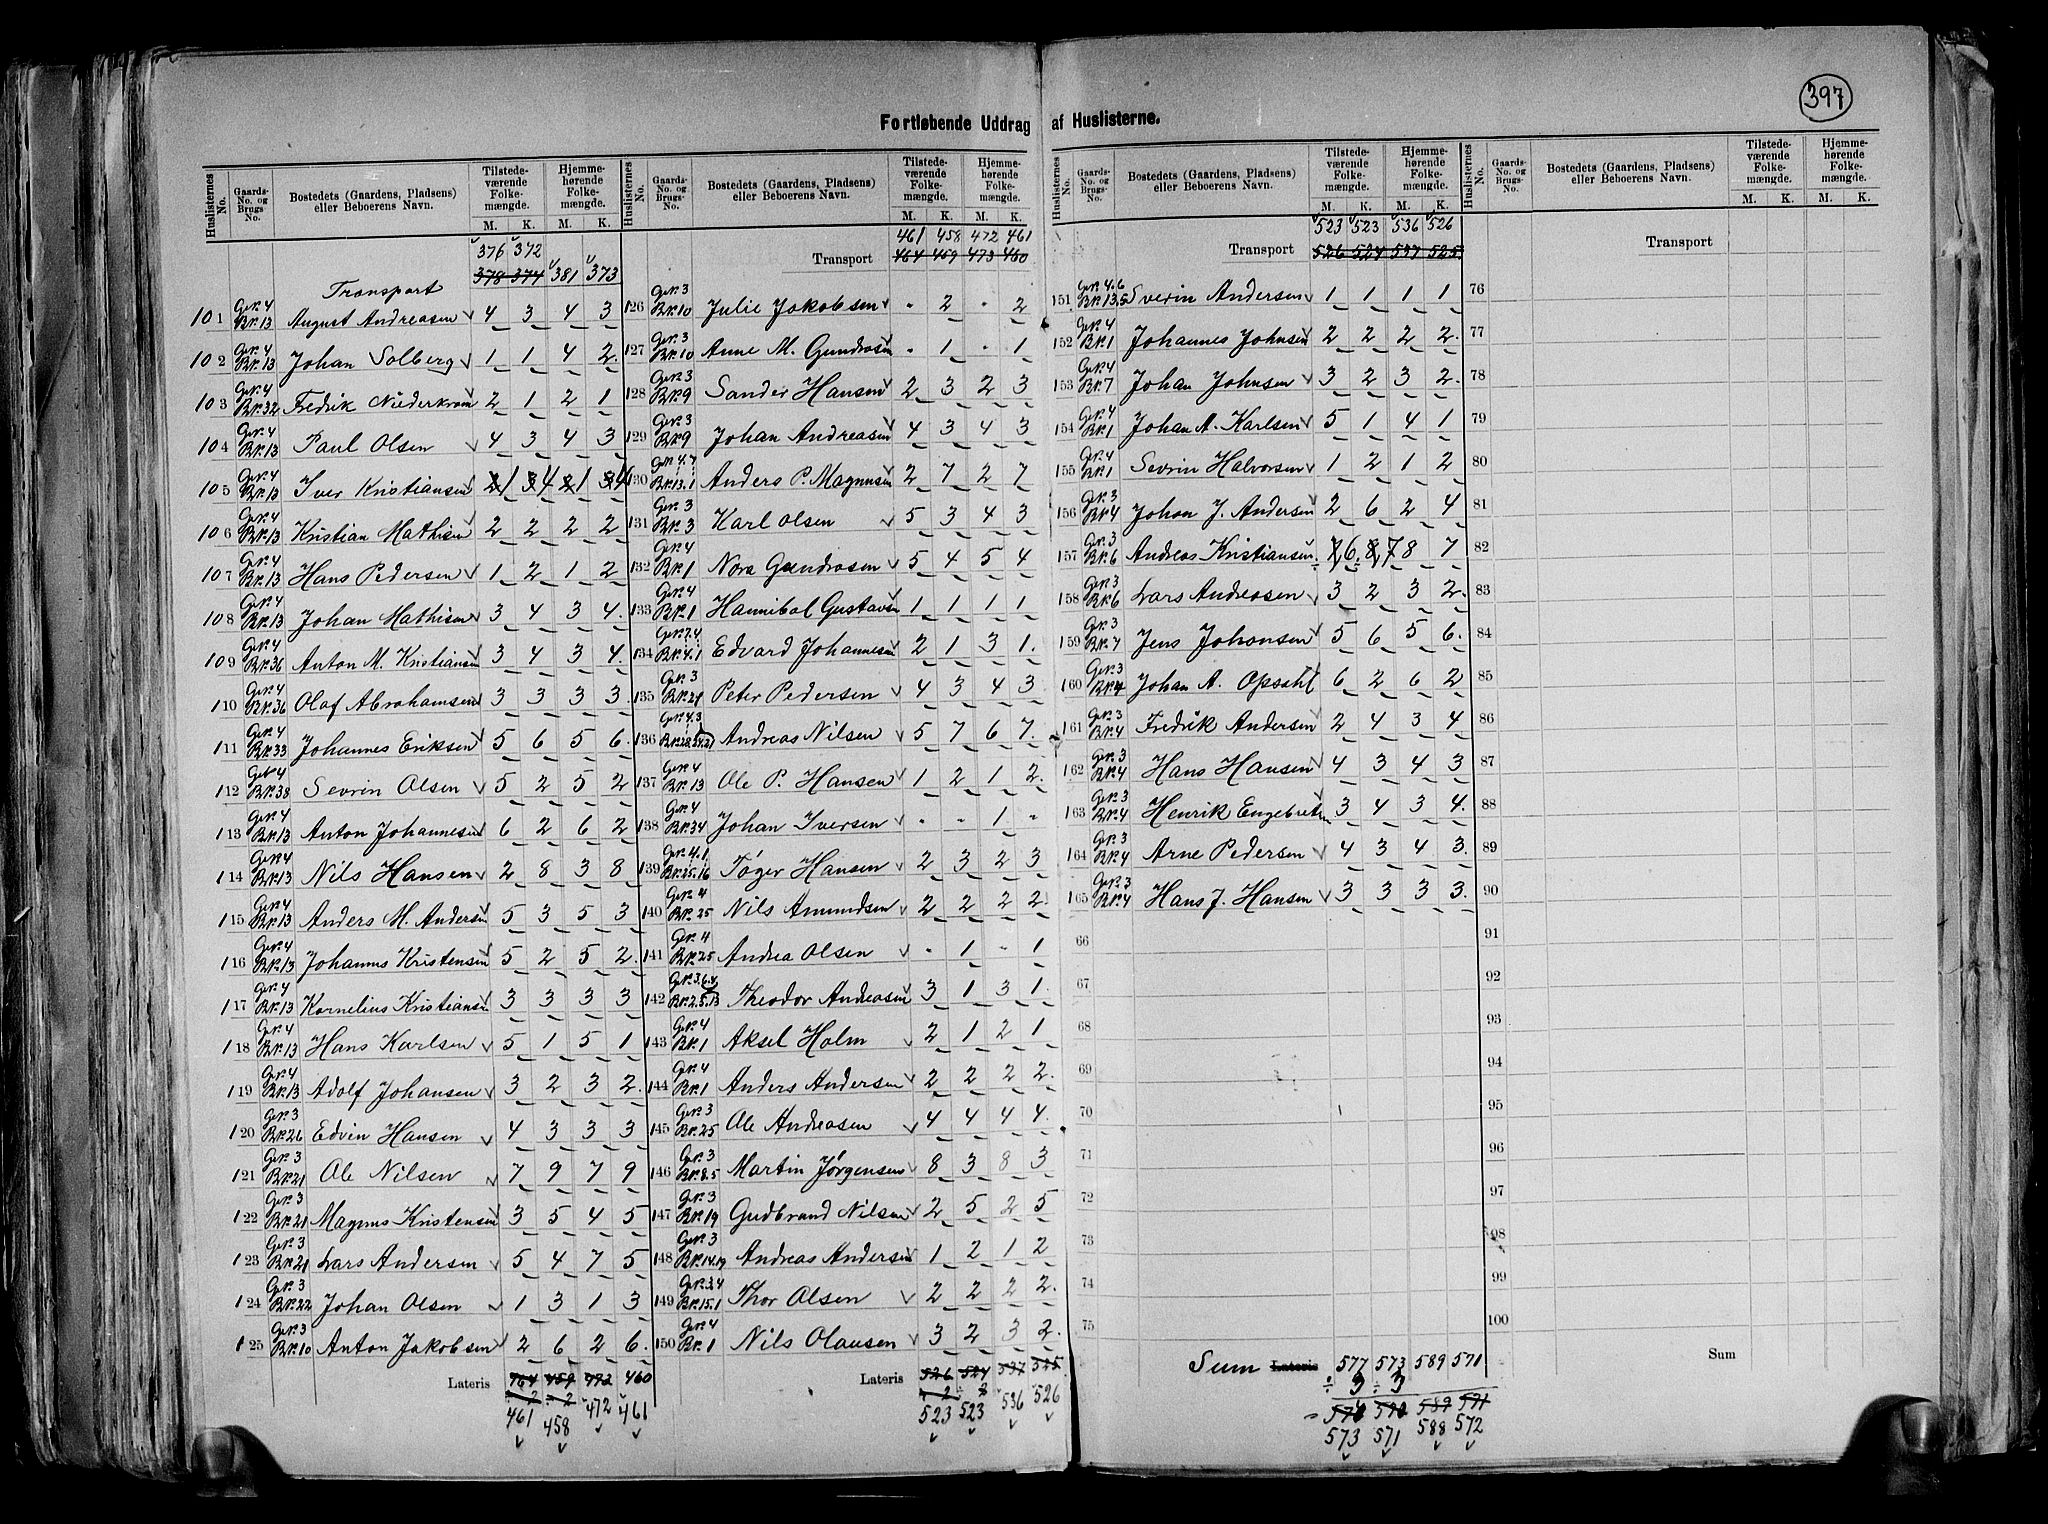 397
Fortløbende Uddrag af Huslisternes.
Huslisternes No. Gaards- No. og Brugs- No. Bostedets (Gaardens, Pladsens) eller Beboerens Navn. Tilstede- værende Folke- mængde. M. K. Hjemme- hørende Folke- mængde. M. K.
376 372
378 374 381 373
Transport
101 Gr. 4 Br. 13 August Andreasen 4 3 4 3
102 Gr. 4 Br. 13 Johan Solberg 1 1 4 2
103 Gr. 4 Br. 32 Fredrik Niederkrom 2 1 2 1
104 Gr. 4 Br. 13 Paul Olsen 4 3 4 3
105 Gr. 4 Br. 13 Iver Kristiansen 2 1 3 4 2 1 3 4
106 Gr. 4 Br. 13 Kristian Mathisen 2 2 2 2
107 Gr. 4 Br. 13 Hans Pedersen 1 2 1 2
108 Gr. 4 Br. 13 Johan Mathisen 3 4 3 4
109 Gr. 4 Br. 36 Anton M. Kristiansen 3 4 3 4
110 Gr. 4 Br. 36 Olaf Abrahamsen 3 3 3 3
111 Gr. 4 Br. 33 Johannes Eriksen 5 6 5 6
112 Gr. 4 Br. 38 Sevrin Olsen 5 2 5 2
113 Gr. 4 Br. 13 Anton Johannesen 6 2 6 2
114 Gr. 4 Br. 13 Nils Hansen 2 8 3 8
115 Gr. 4 Br. 13 Anders M. Andersen 5 3 5 3
116 Gr. 4 Br. 13 Johannes Kristensen 5 2 5 2
117 Gr. 4 Br. 13 Kornelius Kristiansen 3 3 3 3
118 Gr. 4 Br. 13 Hans Karlsen 5 1 5 1
119 Gr. 4 Br. 13 Adolf Johansen 3 2 3 2
120 Gr. 3 Br. 26 Edvin Hansen 4 3 3 3
121 Gr. 3 Br. 21 Ole Nilsen 7 9 7 9
122 Gr. 3 Br. 21 Magnus Kristensen 3 5 4 5
123 Gr. 3 Br. 21 Lars Andersen 5 4 7 5
124 Gr. 3 Br. 22 Johan Olsen 1 3 1 3
125 Gr. 3 Br. 10 Anton Jakobsen 2 6 2 6
Lateris 464 459 473 460
÷ 2 ÷ 2 472 461
461 458
Huslisternes No. Gaards- No. og Brugs- No. Bostedets (Gaardens, Pladsens) eller Beboerens Navn. Tilstede- værende Folke- mængde. M. K. Hjemme- hørende Folke- mængde. M. K.
461 458 472 461
Transport 464 459 473 460
126 Gr. 3 Br. 10 Julie Jakobsen " 2 " 2
127 Gr. 3 Br. 10 Anne M. Gundrosen " 1 " 1
128 Gr. 3 Br. 9 Sander Hansen 2 3 2 3
129 Gr. 3 Br. 9 Johan Andreasen 4 3 4 3
130 Gr. 4.7 Br. 13.1 Anders P. Magnusen 2 7 2 7
131 Gr. 3 Br. 3 Karl Olsen 5 3 4 3
132 Gr. 4 Br. 1 Nora Gundrosen 5 4 5 4
133 Gr. 4 Br. 1 Hannibal Gustavsen 1 1 1 1
134 Gr. 7.4 Br. 4.1 Edvard Johannesen 2 1 3 1
135 Gr. 3 Br. 21 Peter Pedersen 4 3 4 3
136 Gr. 4.3 Andreas Nilsen 5 7 6 7
137 Gr. 4 Br. 13 Ole P. Hansen 1 2 1 2
138 Gr. 4 Br. 34 Johan Iversen " " 1 "
139 Gr. 4.1 Br. 25.16 Tøger Hansen 2 3 2 3
140 Gr. 4 Br. 25 Nils Amundsen 2 2 2 2
141 Gr. 4 Br. 25 Andrea Olsen " 1 " 1
142 Gr. 3.6.4 Br. 2.5.13 Theodor Andreasen 3 1 3 1
143 Gr. 4 Br. 1 Aksel Holm 2 1 2 1
144 Gr. 4 Br. 1 Anders Andersen 2 2 2 2
145 Gr. 3 Br. 25 Ole Andreasen 4 4 4 4
146 Gr. 3 Br. 8.5 Martin Jørgensen 8 3 8 3
147 Gr. 3 Br. 19 Gudbrand Nilsen 2 5 2 5
148 Gr. 3 Br. 14.19 Andreas Andersen 1 2 1 2
149 Gr. 3.4 Br. 15.1 Thor Olsen 2 2 2 2
150 Gr. 4 Br. 1 Nils Olausen 3 2 3 2
Lateris 526 524 537 525
523 523 536 526
Huslisternes No. Gaards- No. og Brugs- No. Bostedets (Gaardens, Pladsens) eller Beboerens Navn. Tilstede- værende Folke- mængde. M. K. Hjemme- hørende Folke- mængde. M. K.
523 523 536 526
Transport 526 524 537 525
151 Gr. 4.6 Br. 13.5 Sverin Andersen 1 1 1 1
152 Gr. 4 Br. 1 Johannes Johnsen 2 2 2 2
153 Gr. 4 Br. 7 Johan Johnsen 3 2 3 2
154 Gr. 4 Br. 1 Johan A. Karlsen 5 1 4 1
155 Gr. 4 Br. 1 Sevrin Halvorsen 1 2 1 2
156 Gr. 3 Br. 4 Johan J. Andersen 2 6 2 4
157 Gr. 3 Br. 6 Andreas Kristiansen 7 6 8 7 8 7
158 Gr. 3 Br. 6 Lars Andreasen 3 2 3 2
159 Gr. 3 Br. 4 Jens Johansen 5 6 5 6
160 Gr. 3 Br. 4 Johan A. Opsahl 6 2 6 2
161 Gr. 3 Br. 4 Fredrik Andersen 2 4 3 4
162 Gr. 3 Br. 4 Hans Hansen 4 3 4 3
163 Gr. 3 Br. 4 Henrik Engebretsen 3 4 3 4
164 Gr. 3 Br. 4 Arne Pedersen 4 3 4 3
165 Gr. 3 Br. 4 Hans J. Hansen 3 3 3 3
66
67
68
69
70
71
72
73
74
75
Sum Lateris 577 573 589 571
÷ 3 ÷ 3
589 571
573 571 588 572
Huslisternes No. Gaards- No. og Brugs- No. Bostedets (Gaardens, Pladsens) eller Beboerens Navn. Tilstede- værende Folke- mængde. M. K. Hjemme- hørende Folke- mængde. M. K.
Transport
76
77
78
79
80
81
82
83
84
85
86
87
88
89
90
91
92
93
94
95
96
97
98
99
100
Sum